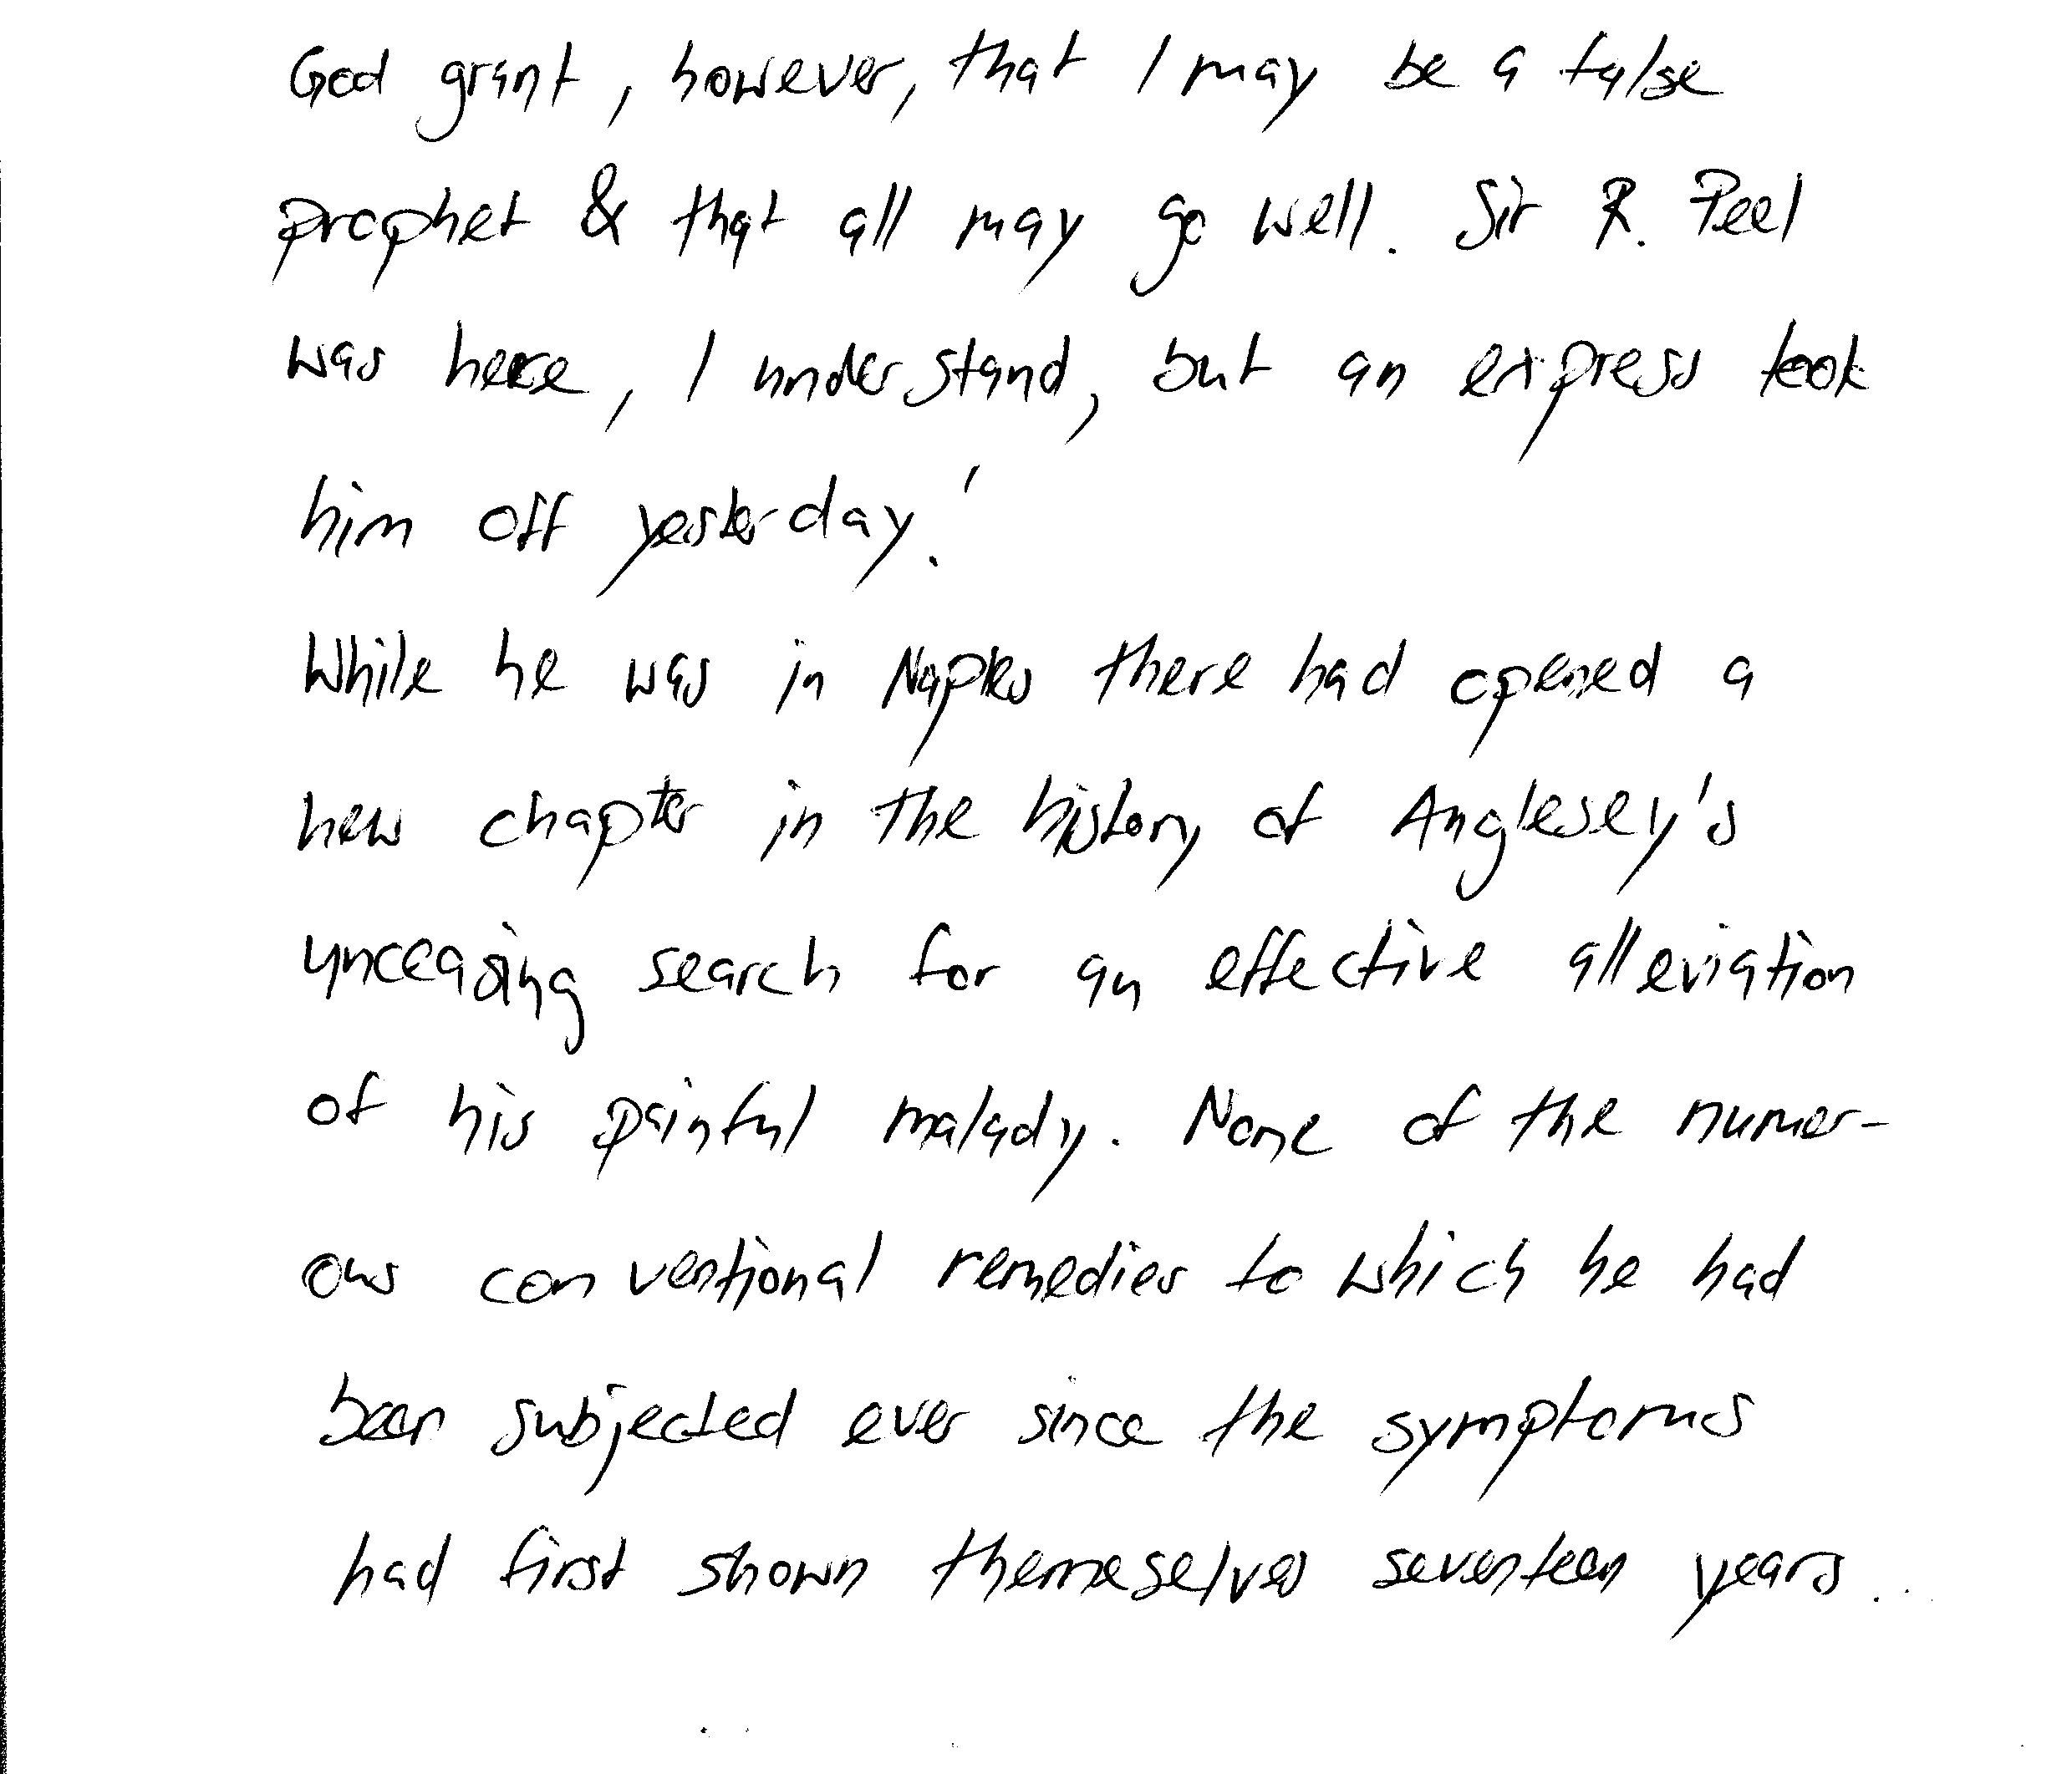 God grant, however, that I may be a false
prophet & that all may go well. Sir R. Peel
was here, I understand, but an express took
him off yesterday.'
While he was in Naples there had opened a
new chapter in the history of Anglesey's
unceasing search for an effective alleviation
of his painful malady. None of the numer-
ous conventional remedies to which he had
been subjected ever since the symptoms
had first shown themeselves seventeen years.